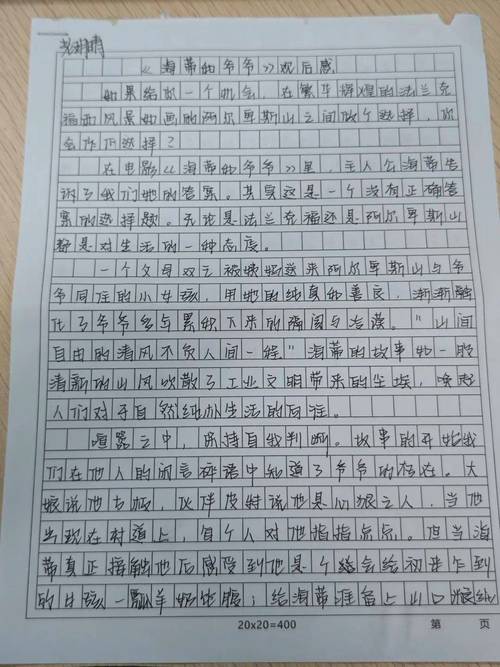 《海蒂和爷爷》观后感
如果给你一个机会，在繁华辉煌的法兰克
福和风景如画的阿尔卑斯山之间做个选择，你
会作何选择？
在电影《海蒂和爷爷》里，主人公海蒂告
诉了我们她的答案。其实这是一个没有正确答
案的选择题。无论是法兰克福还是阿尔卑斯山
都是对生活的一种态度。
一个父母双亡被姨妈送来阿尔卑斯山与爷
爷同住的小女孩，用她的纯真和善良，渐渐融
化了爷爷多年累积下来的隔阂与冷漠。"山间
自由的清风不负人间一程"海蒂的故事如一股
清新的山风吹散了工业文明带来的尘埃，唤起
人们对于自然纯朴生活的向往。
喧嚣之中，保持自我判断。故事的开始我
们在他人的闲言碎语中知道了爷爷的存在。大
娘说他古板，伙伴皮特说他是心狠之人，当他
出现在村道上，每个人对他指指点点。但当海
蒂真正接触他后感受到他是个会给初来乍到
的女孩一瓢羊奶饱腹；给海蒂准备上山口粮